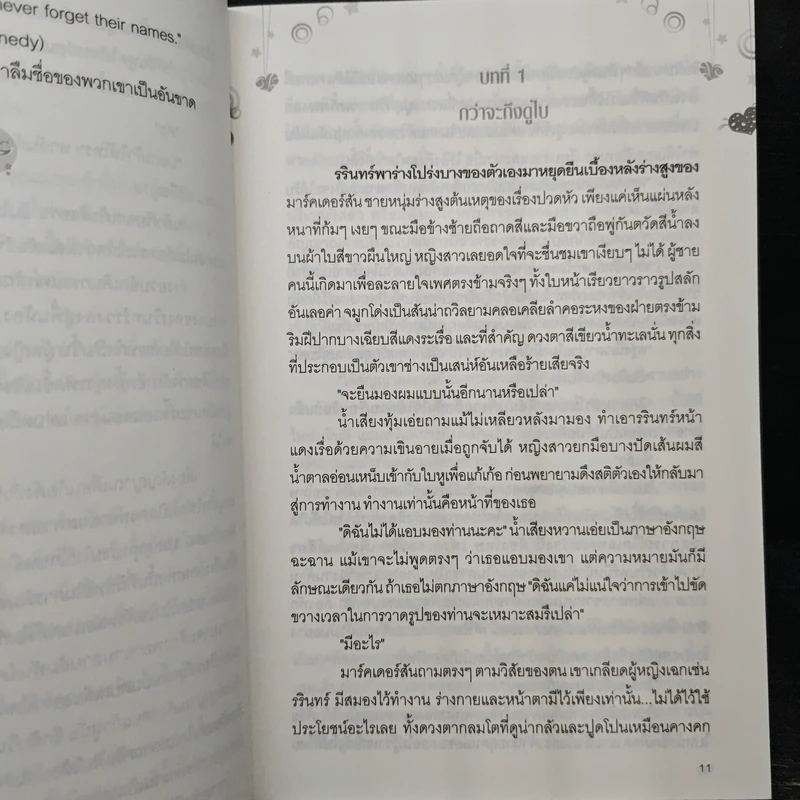 never forget their names."
nedy)
าลืมชื่อของพวกเขาเป็นอันขาด
บทที่ 1
กว่าจะถึงดูไบ
รรินทร์พาร่างโปร่งบางของตัวเองมาหยุดยืนเบื้องหลังร่างสูงของ
มาร์คเดอร์สัน ชายหนุ่มร่างสูงต้นเหตุของเรื่องปวดหัว เพียงแค่เห็นแผ่นหลัง
หนาที่ก้มๆ เงยๆ ขณะมือข้างซ้ายถือถาดสีและมือขวาถือพู่กันตวัดสีน้ำลง
บนผ้าใบสีขาวผืนใหญ่ หญิงสาวเลยอดใจที่จะชื่นชมเขาเงียบๆ ไม่ได้ ผู้ชาย
คนนี้เกิดมาเพื่อละลายใจเพศตรงข้ามจริงๆ ทั้งใบหน้าเรียวยาวราวรูปสลัก
อันเลอค่า จมูกโด่งเป็นสันน่าถวิลยามคลอเคลียลำคอระหงของฝ่ายตรงข้าม
ริมฝีปากบางเฉียบสีแดงระเรื่อ และที่สำคัญ ดวงตาสีเขียวน้ำทะเลนั่น ทุกสิ่ง
ที่ประกอบเป็นตัวเขาช่างเป็นเสน่ห์อันเหลือร้ายเสียจริง
"จะยืนมองผมแบบนั้นอีกนานหรือเปล่า"
น้ำเสียงทุ้มเอ่ยถามแม้ไม่เหลียวหลังมามอง ทำเอารรินทร์หน้า
แดงเรื่อด้วยความเขินอายเมื่อถูกจับได้ หญิงสาวยกมือบางปัดเส้นผมสี
น้ำตาลอ่อนเหน็บเข้ากับใบหูเพื่อแก้เก้อ ก่อนพยายามดึงสติตัวเองให้กลับมา
สู่การทำงาน ทำงานเท่านั้นคือหน้าที่ของเธอ
"ดิฉันไม่ได้แอบมองท่านนะคะ" น้ำเสียงหวานเอ่ยเป็นภาษาอังกฤษ
ฉะฉาน แม้เขาจะไม่พูดตรงๆ ว่าเธอแอบมองเขา แต่ความหมายมันก็มี
ลักษณะเดียวกัน ถ้าเธอไม่ตกภาษาอังกฤษ "ดิฉันแค่ไม่แน่ใจว่าการเข้าไปขัด
ขวางเวลาในการวาดรูปของท่านจะเหมาะสมรึเปล่า"
"มีอะไร"
มาร์คเดอร์สันถามตรงๆ ตามวิสัยของตน เขาเกลียดผู้หญิงเฉกเช่น
รรินทร์ มีสมองไว้ทำงาน ร่างกายและหน้าตามีไว้เพียงเท่านั้น...ไม่ได้ไว้ใช้
ประโยชน์อะไรเลย ทั้งดวงตากลมโตที่ดูน่ากลัวและปูดโปนเหมือนคางคก
11